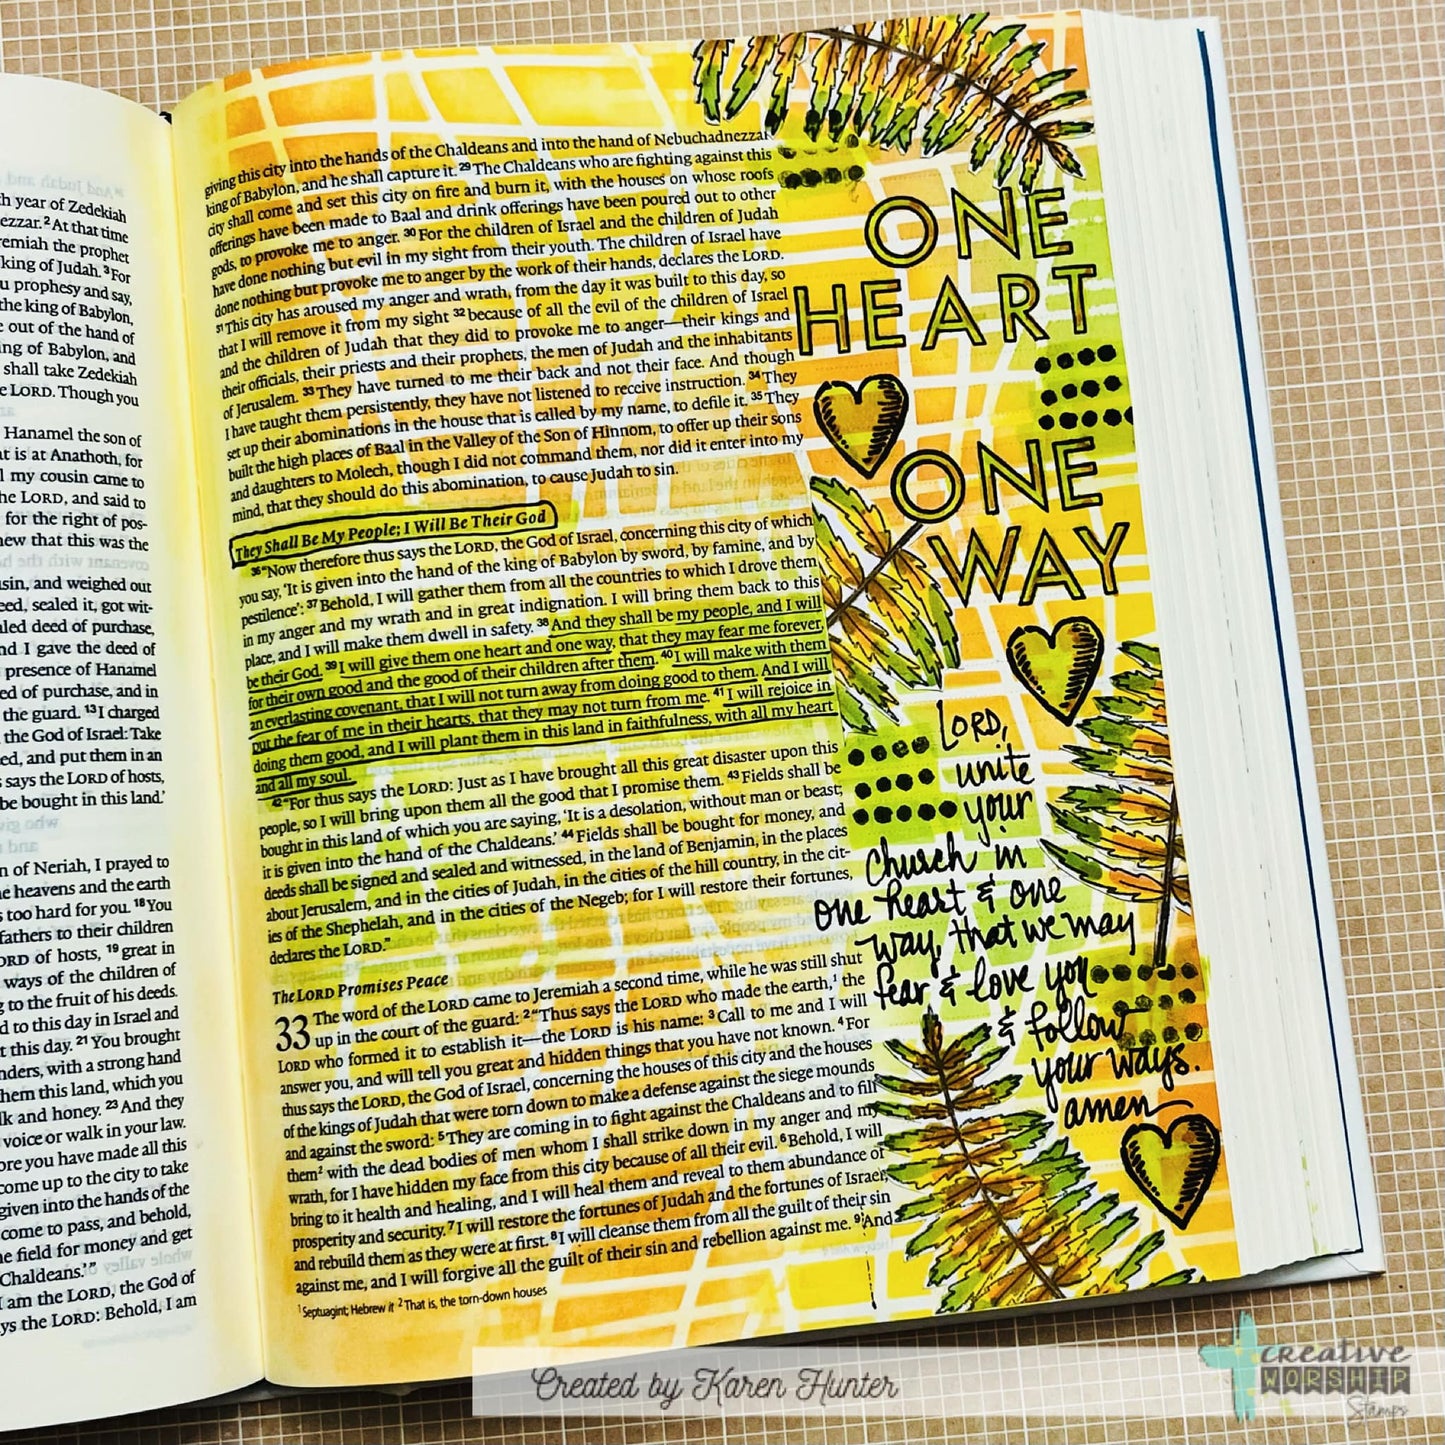 th year of Zedekiah
ezzar. 2 At that time
remiah the prophet
king of Judah. 3 For
u prophesy and say,
the king of Babylon,
e out of the hand of
ng of Babylon, and
shall take Zedekiah
e LORD. Though you
Hanamel the son of
at is at Anathoth, for
l my cousin came to
the LORD, and said to
for the right of pos-
new that this was the
usin, and weighed out
eed, sealed it, got wit-
aled deed of purchase,
nd I gave the deed of
presence of Hanamel
ed of purchase, and in
the guard. 13 I charged
the God of Israel: Take
ed, and put them in an
says the LORD of hosts,
be bought in this land.'
n of Neriah, I prayed to
he heavens and the earth
s too hard for you. 18 You
fathers to their children
ORD of hosts, 19 great in
ways of the children of
g to the fruit of his deeds.
d to this day in Israel and
t this day. 21 You brought
nders, with a strong hand
them this land, which you
lk and honey. 23 And they
voice or walk in your law.
ore you have made all this
come up to the city to take
given into the hands of the
come to pass, and behold,
he field for money and get
Chaldeans.'"
I am the LORD, the God of
ys the LORD: Behold, I am
giving this city into the hands of the Chaldeans and into the hand of Nebuchadnezzar
king of Babylon, and he shall capture it. 29 The Chaldeans who are fighting against this
city shall come and set this city on fire and burn it, with the houses on whose roofs
offerings have been made to Baal and drink offerings have been poured out to other
gods, to provoke me to anger. 30 For the children of Israel and the children of Judah
have done nothing but evil in my sight from their youth. The children of Israel have
done nothing but provoke me to anger by the work of their hands, declares the LORD.
31 This city has aroused my anger and wrath, from the day it was built to this day, so
that I will remove it from my sight 32 because of all the evil of the children of Israel
and the children of Judah that they did to provoke me to anger—their kings and
their officials, their priests and their prophets, the men of Judah and the inhabitants
of Jerusalem. 33 They have turned to me their back and not their face. And though
I have taught them persistently, they have not listened to receive instruction. 34 They
set up their abominations in the house that is called by my name, to defile it. 35 They
built the high places of Baal in the Valley of the Son of Hinnom, to offer up their sons
and daughters to Molech, though I did not command them, nor did it enter into my
mind, that they should do this abomination, to cause Judah to sin.
They Shall Be My People; I Will Be Their God
36 "Now therefore thus says the LORD, the God of Israel, concerning this city of which
you say, 'It is given into the hand of the king of Babylon by sword, by famine, and by
pestilence': 37 Behold, I will gather them from all the countries to which I drove them
in my anger and my wrath and in great indignation. I will bring them back to this
place, and I will make them dwell in safety. 38 And they shall be my people, and I will
be their God. 39 I will give them one heart and one way, that they may fear me forever,
for their own good and the good of their children after them. 40 I will make with them
an everlasting covenant, that I will not turn away from doing good to them. And I will
put the fear of me in their hearts, that they may not turn from me. 41 I will rejoice in
doing them good, and I will plant them in this land in faithfulness, with all my heart
and all my soul.
42 "For thus says the LORD: Just as I have brought all this great disaster upon this
people, so I will bring upon them all the good that I promise them. 43 Fields shall be
bought in this land of which you are saying, 'It is a desolation, without man or beast;
it is given into the hand of the Chaldeans.' 44 Fields shall be bought for money, and
deeds shall be signed and sealed and witnessed, in the land of Benjamin, in the places
about Jerusalem, and in the cities of Judah, in the cities of the hill country, in the cit-
ies of the Shephelah, and in the cities of the Negeb; for I will restore their fortunes,
declares the LORD."
The LORD Promises Peace
33 The word of the LORD came to Jeremiah a second time, while he was still shut
up in the court of the guard: 2 "Thus says the LORD who made the earth,1 the
LORD who formed it to establish it—the LORD is his name: 3 Call to me and I will
answer you, and will tell you great and hidden things that you have not known. 4 For
thus says the LORD, the God of Israel, concerning the houses of this city and the houses
of the kings of Judah that were torn down to make a defense against the siege mounds
and against the sword: 5 They are coming in to fight against the Chaldeans and to fill
them2 with the dead bodies of men whom I shall strike down in my anger and my
wrath, for I have hidden my face from this city because of all their evil. 6 Behold, I will
bring to it health and healing, and I will heal them and reveal to them abundance of
prosperity and security. 7 I will restore the fortunes of Judah and the fortunes of Israel,
and rebuild them as they were at first. 8 I will cleanse them from all the guilt of their sin
against me, and I will forgive all the guilt of their sin and rebellion against me. 9 And
1 Septuagint; Hebrew it 2 That is, the torn-down houses
ONE
HEART
ONE
WAY
LORD,
unite
your
church in
one heart & one
way, that we may
fear & love you
& follow
your ways.
amen
Created by Karen Hunter
creative
WORSHIP
Stamps